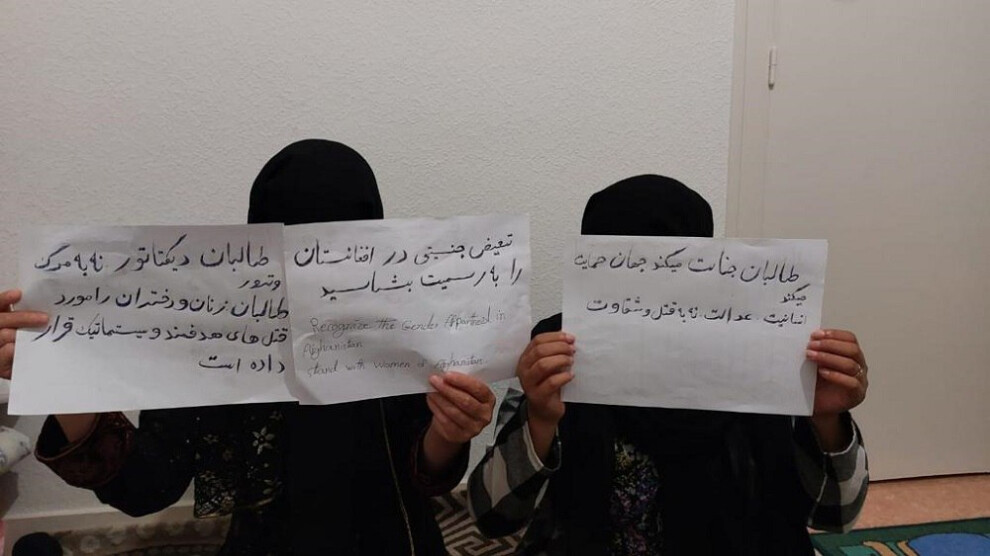 طالبان دیکتاتور نه به مرگ
وترور
طالبان زنان و دختران را مورد
قتل های هدفمند و سیستماتیک قرار
داده است
تبعیض جنسیتی در افغانستان
را به رسمیت بشناسید
Recognize the Gender in
Afghanistan
stand with women of Afghanistan
طالبان جنایت میکند جهان حمایت
میکند
انسانیت ، عدالت ، نه به قتل و شقاوت